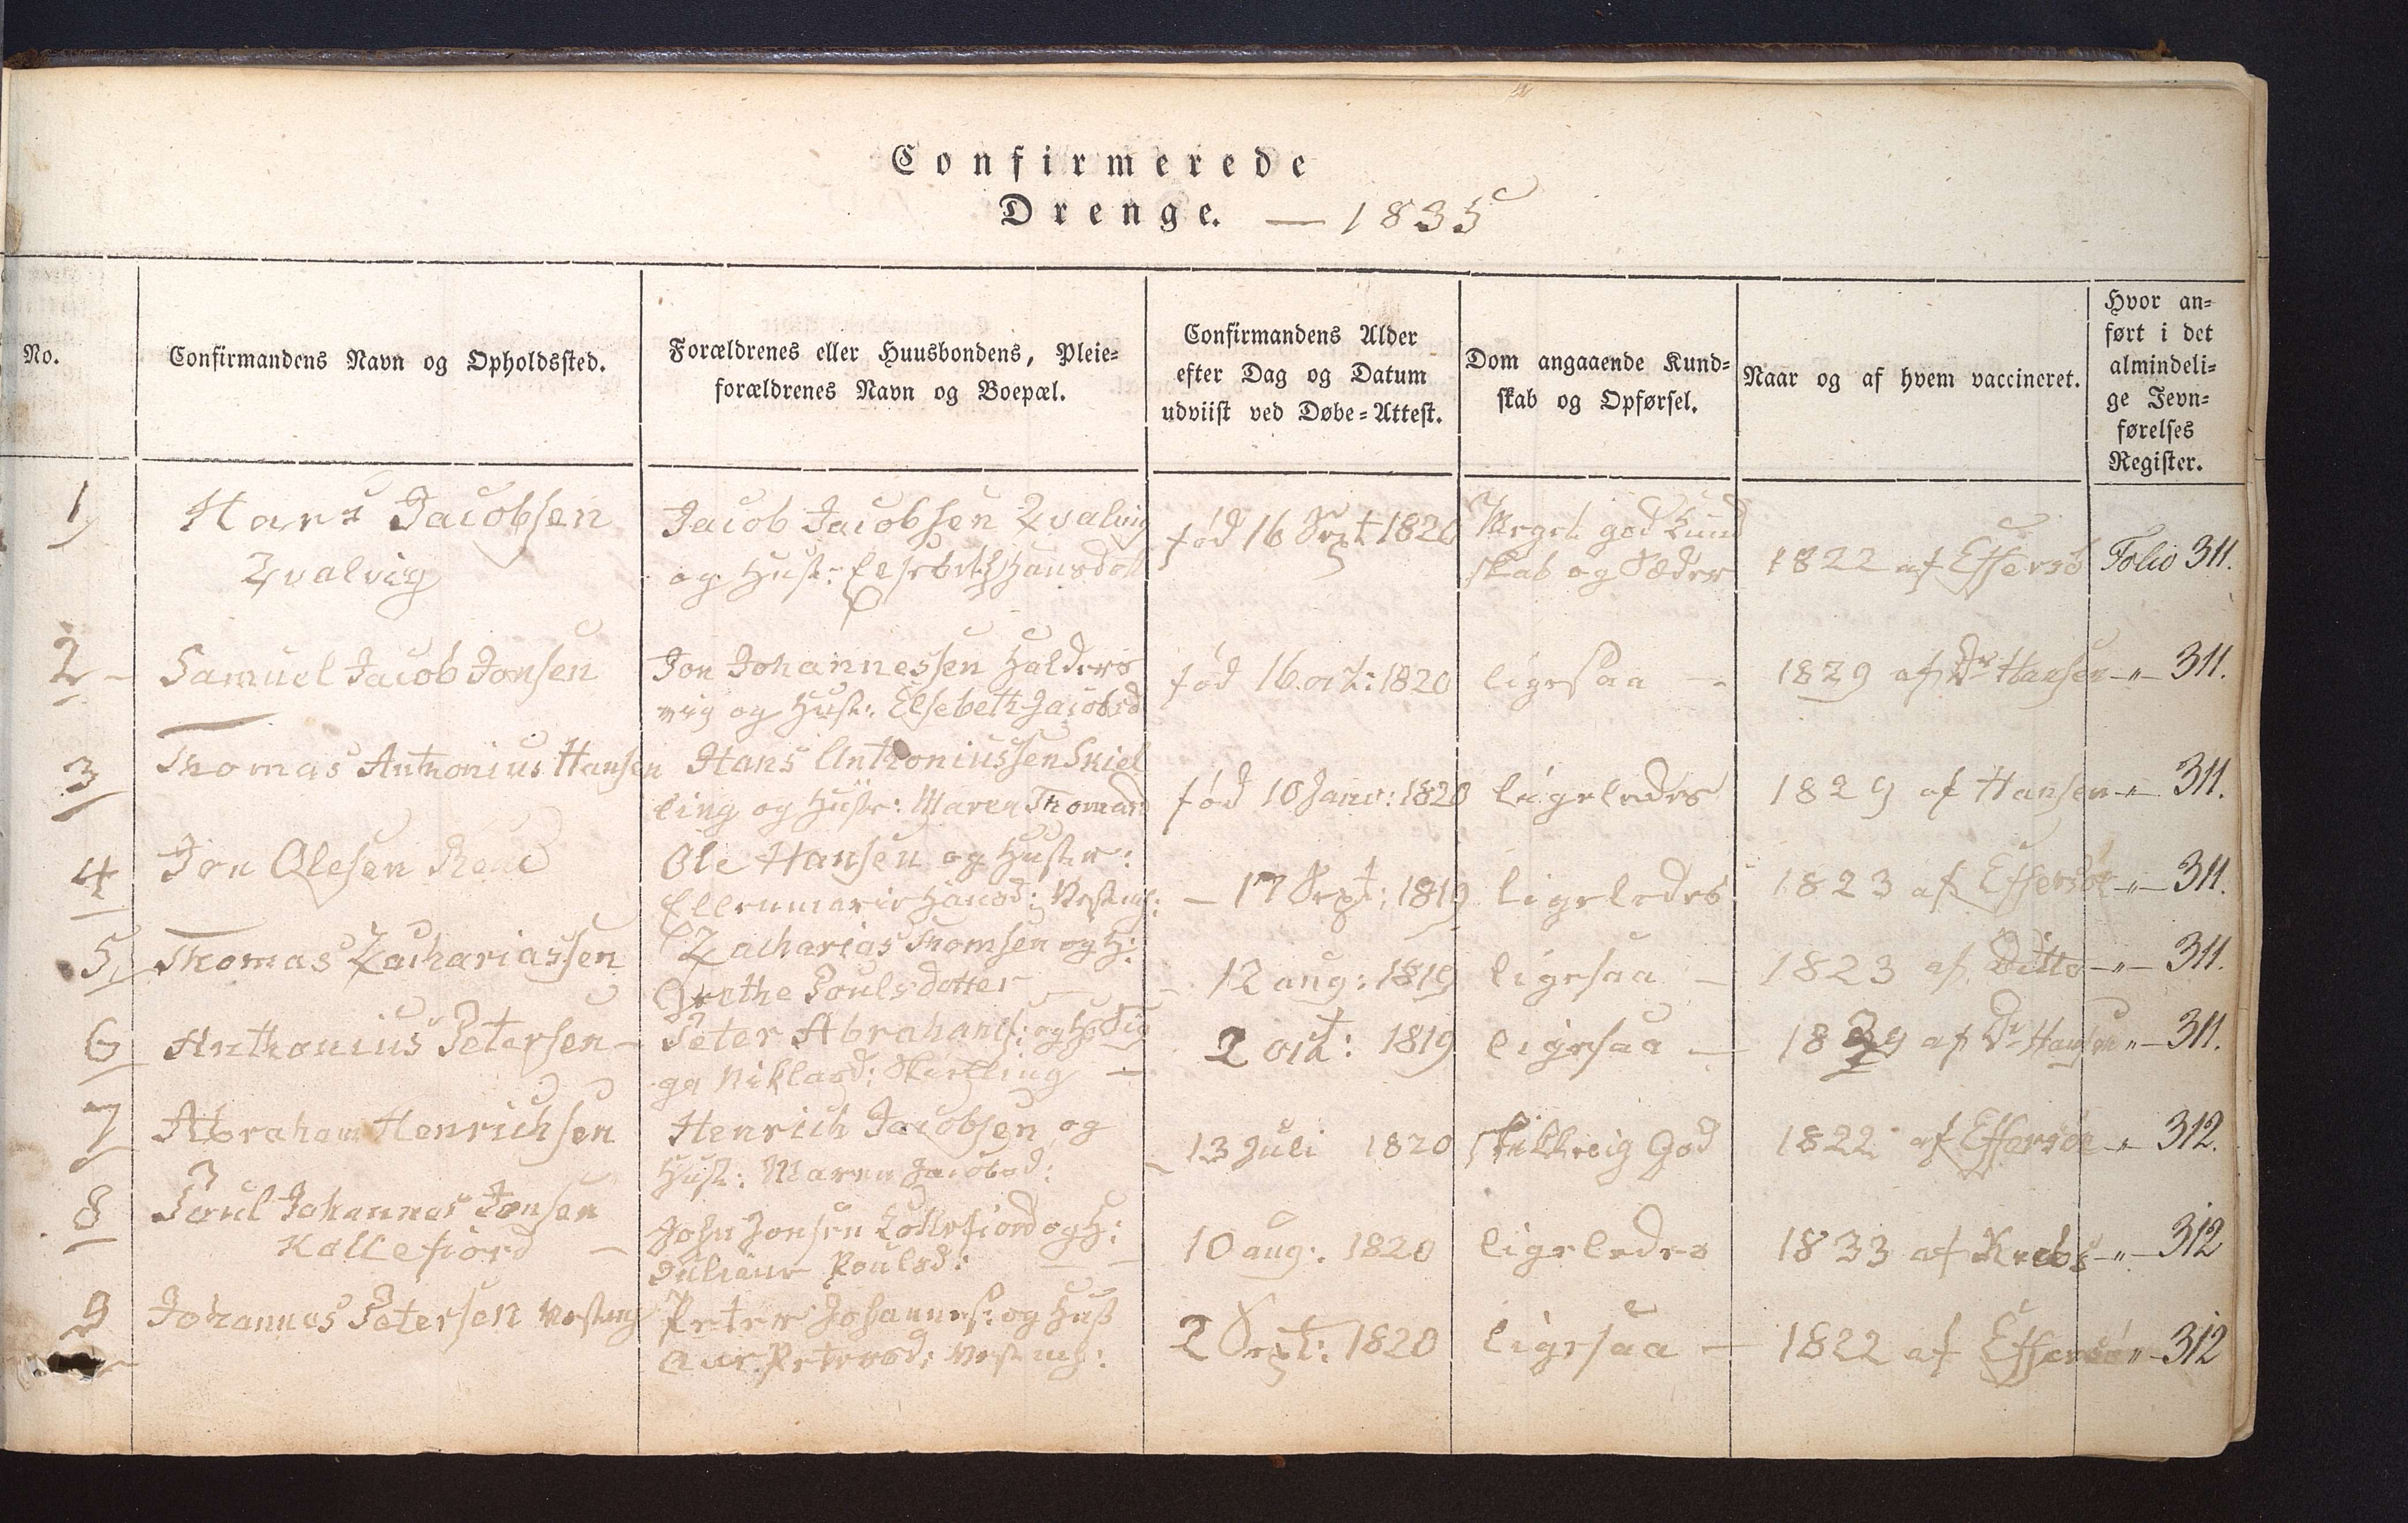 Confirmerede
Drenge. — 1835
No.
Confirmandens Navn og Opholdssted.
Forældrenes eller Huusbondens, Pleie=
forældrenes Navn og Boepæl.
Confirmandens Alder
efter Dag og Datum
udviist ved Døbe=Attest.
Dom angaaende Kund=
skab og Opførsel.
Naar og af hvem vaccineret.
Hvor an=
ført i det
almindeli=
ge Jevn=
førelses
Register.
1
Hans Jacobsen
Qvalvig
Jacob Jacobsen Qvalvig
og Hust: Elsebeth Hansdatt
fød 16 Sept 1820
Meget god Kund
skab og Sæder
1822 af Effersö
Folio 311.
2 -
Samuel Jacob Jonsen
Jon Johannessen Halders
vig og Hust: Elsebeth Jacobsd
fød 16 oct: 1820
ligesaa —
1829 af Dr Hansen -"- 311.
3
Thomas Anthonius Hansen
Hans Anthoniussen Skiel
ling og Hustr: Maren Thomasd
fød 10 Janv: 1820
ligeledes
1829 af Hansen -"- 311.
4
Jon Olesen
Ole Hansen og Hustr:
Ellenmarie Hansd: Vestmh:
- 17 Sept: 1819
ligeledes
1823 af Effersöe -"- 311.
5
Thomas Zachariassen
Zacharias Thomsen og H:
Grethe Poulsdatter —
- 12 aug: 1819
ligesaa —
1823 af Ditto -"- 311.
6
Anthonius Petersen -
Peter Abrahams: og H:
Niklasd: Skielling —
2 oct: 1819
ligesaa —
1829 af Dr Hansen "- 311.
7
Abraham Henrichsen
Henrich Jacobsen og
Hust: Maren Jacobsd:
- 13 Juli 1820
skikkelig God
1822 af Effersöe -"- 312.
8
Poul Johannes Jonsen
Kollefiord —
John Jonsen Kollefiord og H:
Juliane Poulsd: — —
10 aug: 1820
ligeledes
1833 af Krebs -"- 312
9
Johannes Petersen Vestmh
Peter Johannes: og Hust
Ane Petersd: Vestmh:
2 Sept: 1820
ligesaa —
1822 af Effersö "- 312